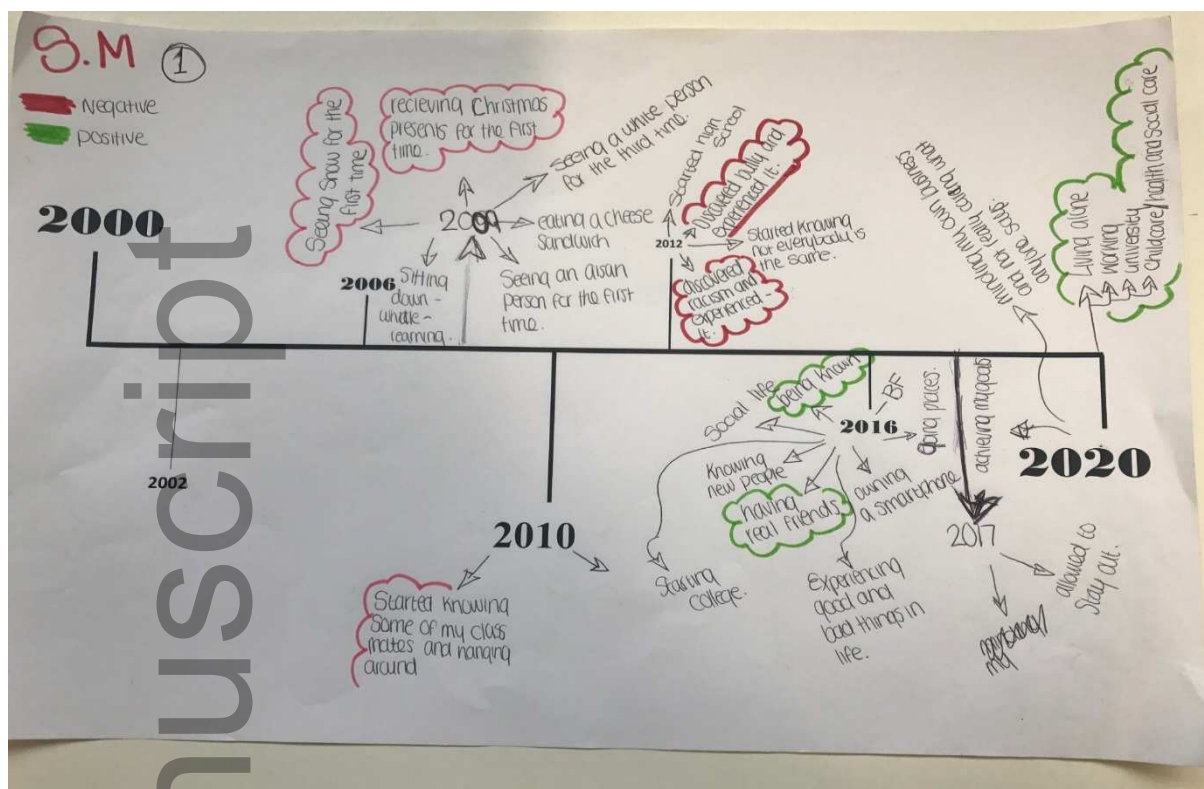 S.M ①
Negative
positive
2000
Seeing Snow for the
first time
recieving Christmas
presents for the first
time.
Seeing a white person
for the third time.
2009
eating a cheese
sandwich
Seeing an aisan
person for the first
time.
Sitting
down -
while -
learning.
2006
2012
Started high
school
Discovered bully and
experienced it.
Started knowing
not everybody is
the same.
discovered
racism and
experienced -
it.
minding my own business
and not really caring what
anyone says.
Living alone
working
university
childcare/health and social care
2002
2010
Started knowing
some of my class
mates and hanging
around
2016
BF
being known
Social life
Knowing
new people
having
real friends
owning
a smartphone
going places.
Starting
college.
Experiencing
good and
bad things in
life.
achieving my goals
2020
2017
allowed to
stay out.
nuscript